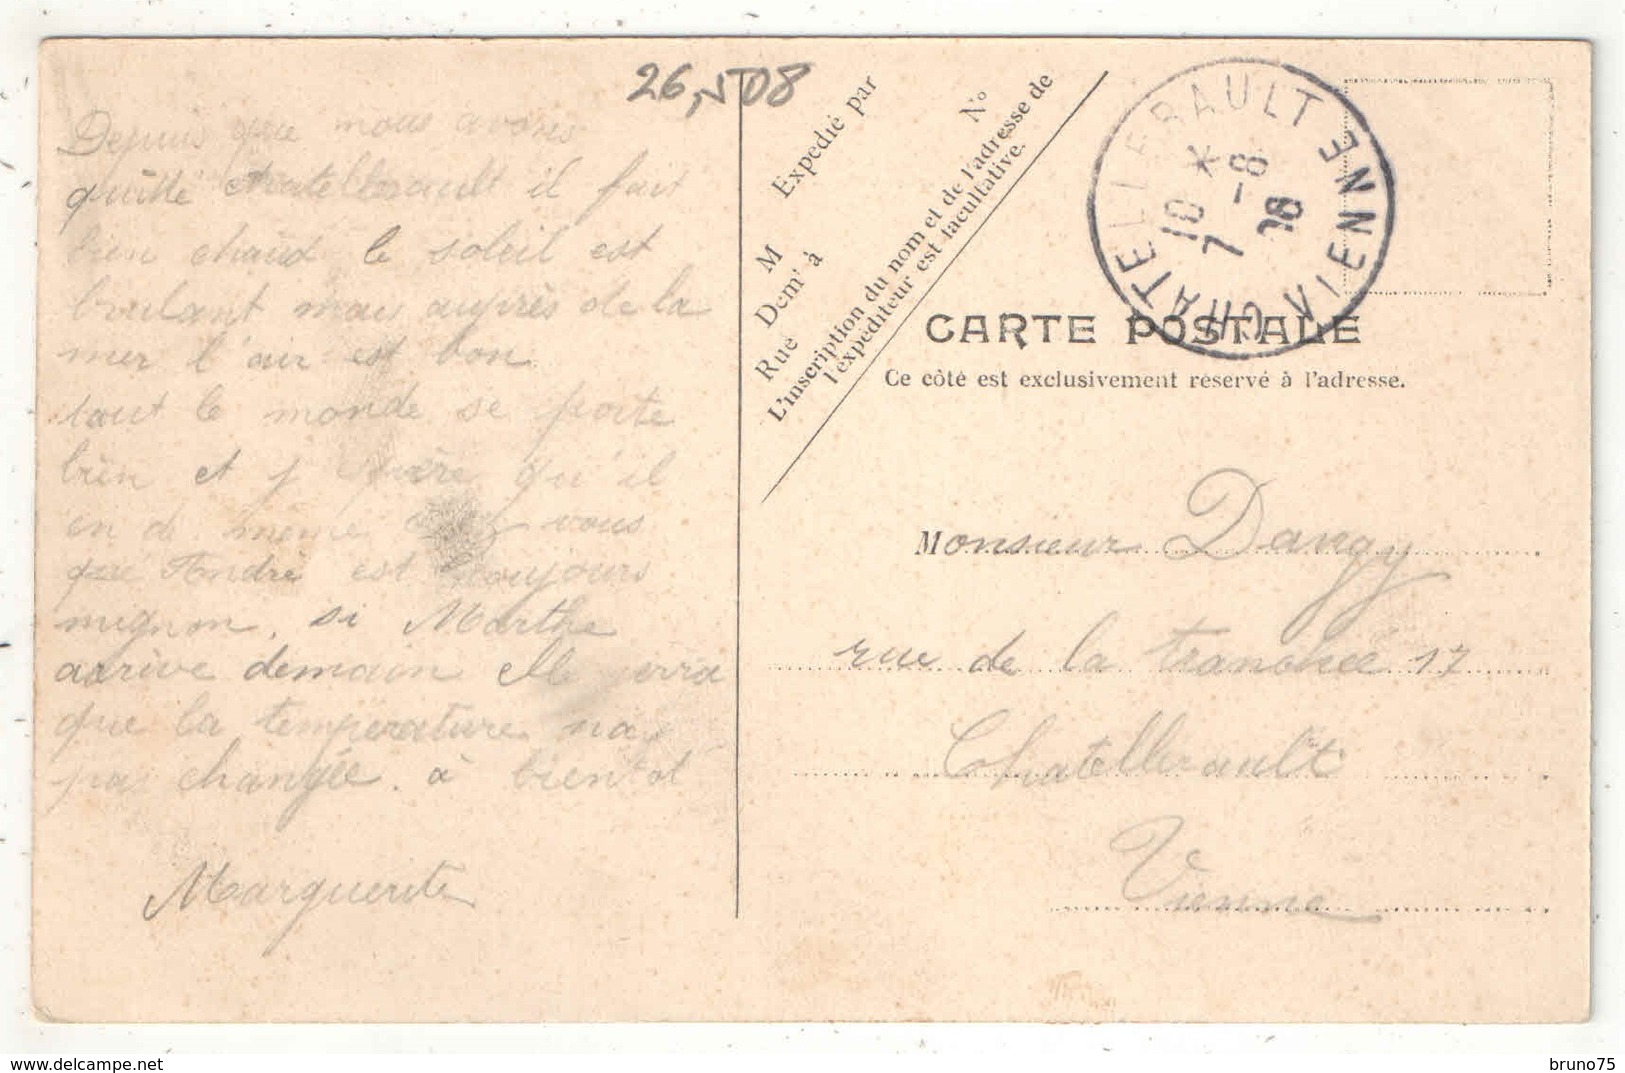 26,508
Depuis que nous avons
quitté Chatellerault il fait
bien chaud le soleil est
brulant mais auprès de la
mer l'air est bon
tout le monde se porte
bien et j qu'il
en de même vous
que André est toujours
mignon, si Marthe
arrive demain elle verra
que la température na
pas changée. à bientot
Marguerite
Expédié par
M
Demt à
Rue
No
L'inscription du nom et de l'adresse de
l'expéditeur est facultative.
CHATELLERAULT VIENNE
*
10
7 -8
CARTE POSTALE
Ce côté est exclusivement réservé à l'adresse.
Monsieur Dangy
rue de la tranchée 17
Chatellerault
Vienne
bruno75